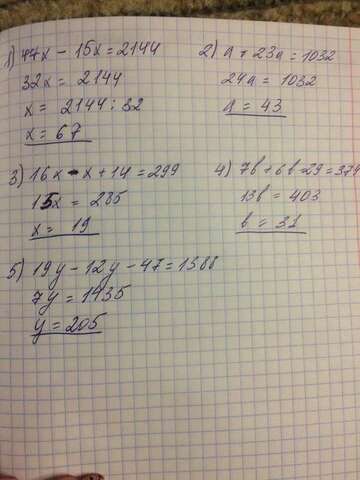 1) 47x - 15x = 2144
32x = 2144
x = 2144 : 32
x = 67
2) a + 23a = 1032
24a = 1032
a = 43
3) 16x - x + 14 = 299
15x = 285
x = 19
4) 7b + 6b - 29 = 374
13b = 403
b = 31
5) 19y - 12y - 47 = 1388
7y = 1435
y = 205